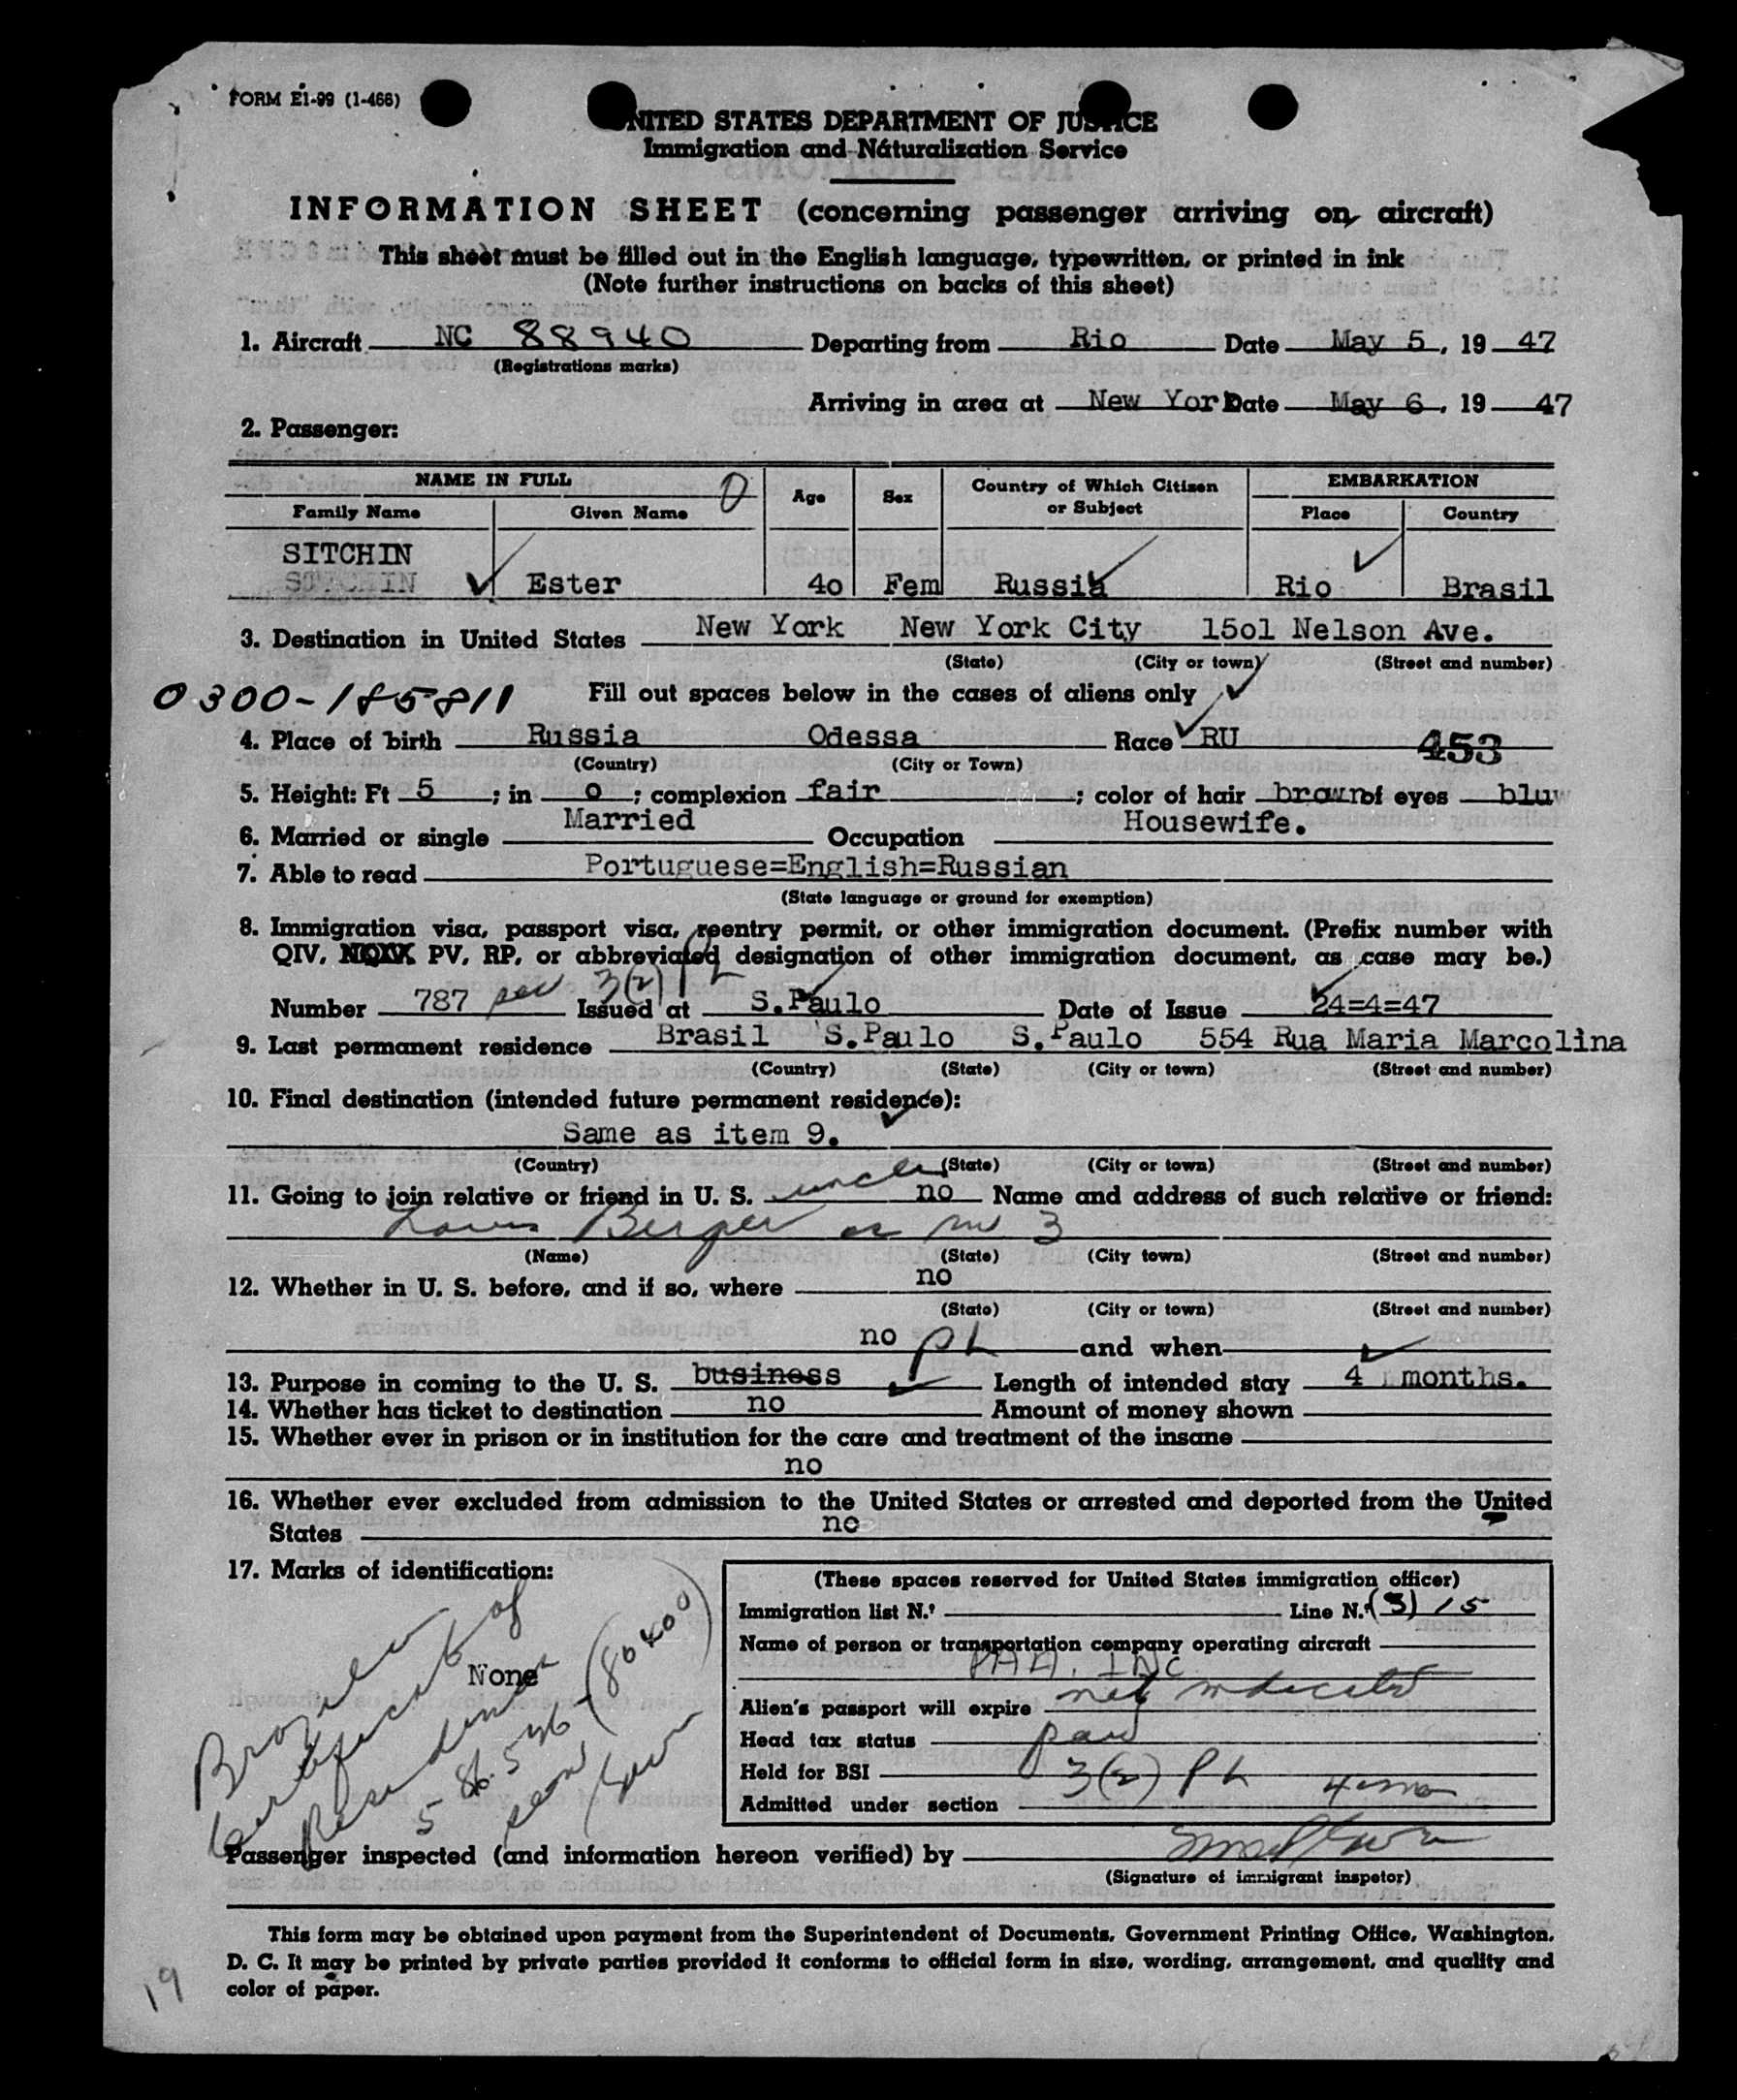 FORM E1-99 (1-466)
UNITED STATES DEPARTMENT OF JUSTICE
Immigration and Naturalization Service
INFORMATION SHEET (concerning passenger arriving on aircraft)
This sheet must be filled out in the English language, typewritten, or printed in ink
(Note further instructions on backs of this sheet)
1. Aircraft NC 88940 Departing from Rio Date May 5, 19 47
(Registrations marks)
Arriving in area at New York Date May 6, 19 47
2. Passenger:
NAME IN FULL Age Sex Country of Which Citizen or Subject EMBARKATION
Family Name Given Name Place Country
SITCHIN
SITCHIN Ester 4o Fem Russia Rio Brasil
3. Destination in United States New York New York City 15o1 Nelson Ave.
(State) (City or town) (Street and number)
0300-185811 Fill out spaces below in the cases of aliens only
4. Place of birth Russia Odessa Race RU 453
(Country) (City or Town)
5. Height: Ft 5 ; in o ; complexion fair ; color of hair brown of eyes blu
6. Married or single Married Occupation Housewife.
7. Able to read Portuguese=English=Russian
(State language or ground for exemption)
8. Immigration visa, passport visa, reentry permit, or other immigration document. (Prefix number with
QIV, NQIV, PV, RP, or abbreviated designation of other immigration document, as case may be.)
Number 787 3(2) PL Issued at S.Paulo Date of Issue 24=4=47
9. Last permanent residence Brasil S.Paulo S.Paulo 554 Rua Maria Marcolina
(Country) (State) (City or town) (Street and number)
10. Final destination (intended future permanent residence):
Same as item 9.
(Country) (State) (City or town) (Street and number)
11. Going to join relative or friend in U. S. uncle no Name and address of such relative or friend:
Louis Berger as in 3
(Name) (State) (City town) (Street and number)
12. Whether in U. S. before, and if so, where no
(State) (City or town) (Street and number)
no and when
13. Purpose in coming to the U. S. business PL Length of intended stay 4 months.
14. Whether has ticket to destination no Amount of money shown
15. Whether ever in prison or in institution for the care and treatment of the insane
no
16. Whether ever excluded from admission to the United States or arrested and deported from the United
States no
17. Marks of identification:
None
Brazilian
Certificate of
Residence
(80400)
(These spaces reserved for United States immigration officer)
Immigration list N.º Line N.º (3) 15
Name of person or transportation company operating aircraft
PAA. INC
Alien's passport will expire not indicated
Head tax status paid
Held for BSI
Admitted under section 3(2) PL 4 mo
Passenger inspected (and information hereon verified) by
(Signature of immigrant inspetor)
This form may be obtained upon payment from the Superintendent of Documents, Government Printing Office, Washington,
D. C. It may be printed by private parties provided it conforms to official form in size, wording, arrangement, and quality and
color of paper.
19